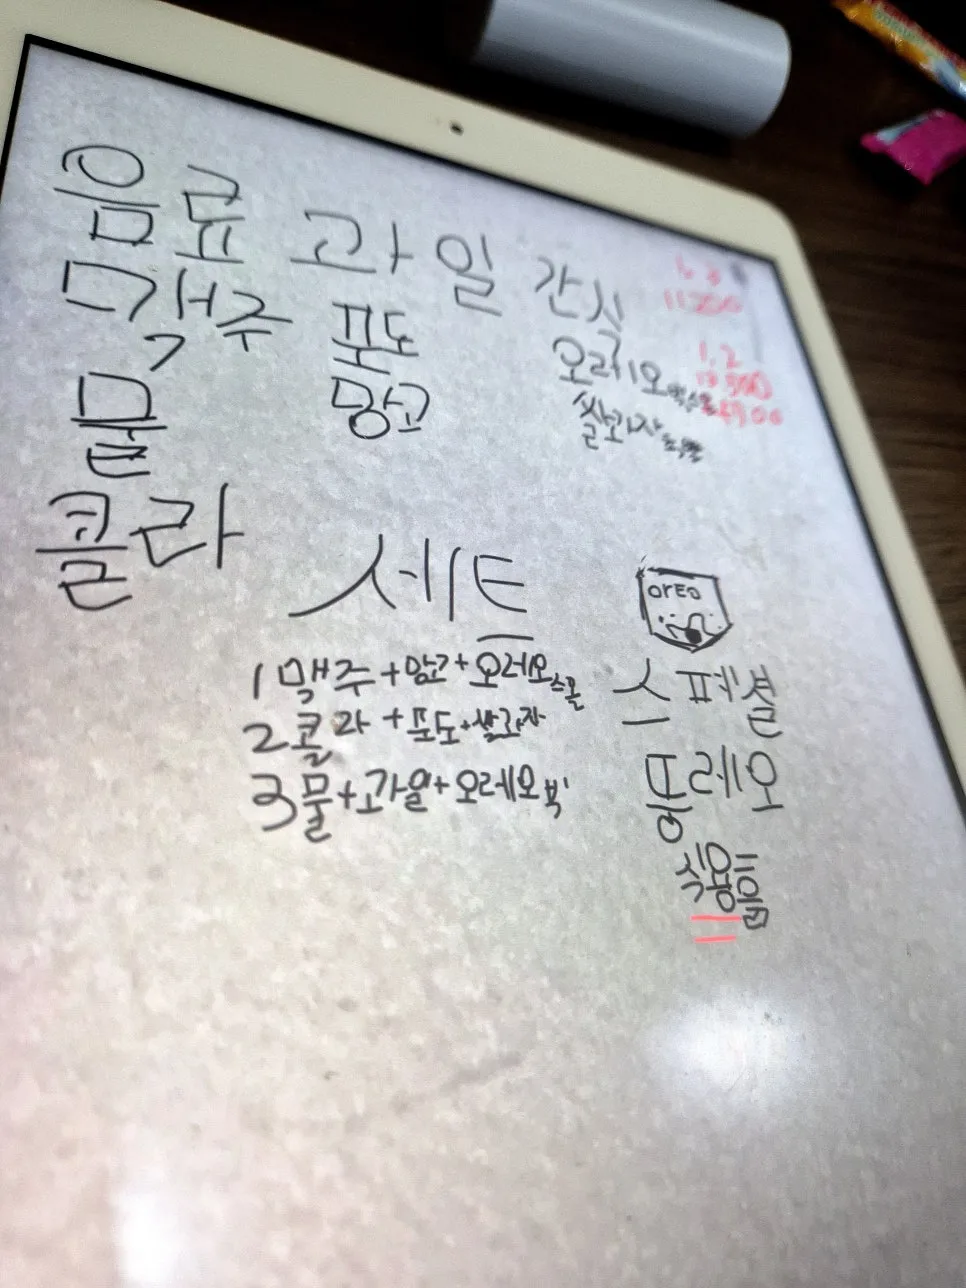 음료 과일 간식
맥주 포도 오레오
물 망고 쌀과자
콜라
1,2
세트
OrEO
1 맥주+망고+오레오 스몰
2 콜라+포도+쌀과자
3 물+과일+오레오 빅
스페셜
퐁레오
식용